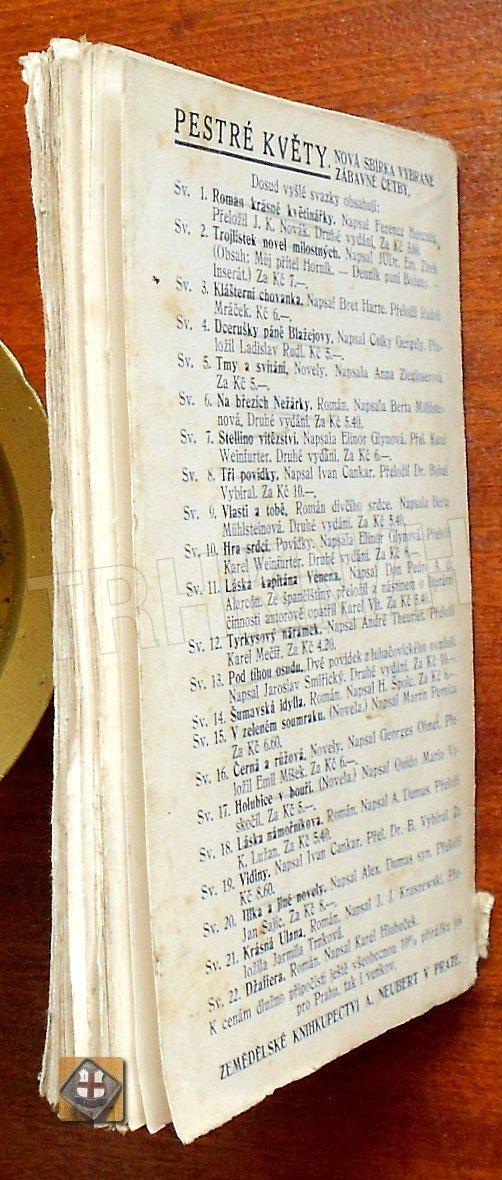 PESTRÉ KVĚTY. NOVÁ SBÍRKA VYBRANÉ
ZÁBAVNÉ ČETBY.
Dosud vyšlé svazky obsahují:
Sv. 1. Roman krásné květinářky. Napsal Ferencz Herczeg.
Přeložil J. K. Novák. Druhé vydání. Za Kč 3.60.
Sv. 2. Trojlístek novel milostných. Napsal JUDr. Em. Žitek
(Obsah: Můj přítel Horník. — Denník paní Boženy. —
Inserát.) Za Kč 7.—.
Sv. 3. Klášterní chovanka. Napsal Bret Harte. Přeložil Rudolf
Mráček. Kč 6.—.
Sv. 4. Dcerušky páně Blažejovy. Napsal Csiky Gergely. Pře-
ložil Ladislav Rudl. Kč 5.—.
Sv. 5. Tmy a svítání. Novely. Napsala Anna Ziegloserová.
Za Kč 5.—.
Sv. 6. Na březích Nežárky. Román. Napsala Berta Mühlstei-
nová. Druhé vydání. Za Kč 5.40.
Sv. 7. Stellino vítězství. Napsala Elinor Glynová. Přel. Karel
Weinfurter. Druhé vydání. Za Kč 6.—.
Sv. 8. Tři povídky. Napsal Ivan Cankar. Přeložil Dr. Bohuš
Vybíral. Za Kč 10.—.
Sv. 9. Vlasti a tobě. Román dívčího srdce. Napsala Berta
Mühlsteinová. Druhé vydání. Za Kč 5.40.
Sv. 10. Hra srdcí. Povídky. Napsala Elinor Glynová. Přeložil
Karel Weinfurter. Druhé vydání. Za Kč 8.—.
Sv. 11. Láska kapitána Venena. Napsal Don Pedro A. de
Alarcón. Ze španělštiny přeložil a nástinem o literární
činnosti autorově opatřil Karel Vít. Za Kč 5.40.
Sv. 12. Tyrkysový náramek. Napsal André Theuriet. Přeložil
Karel Mečíř. Za Kč 4.20.
Sv. 13. Pod tíhou osudu. Dvě povídky z luhačovického ovzduší
Napsal Jaroslav Smiřický. Druhé vydání. Za Kč 10.—
Sv. 14. Šumavská idylla. Román. Napsal H. Špolc. Za Kč 6.—
Sv. 15. V zeleném soumraku. (Novela.) Napsal Martin Pernica
Za Kč 6.60.
Sv. 16. Černá a růžová. Novely. Napsal Georges Ohnet. Pře-
ložil Emil Míšek. Za Kč 6.—.
Sv. 17. Holubice v bouři. (Novela.) Napsal Quido Maria Vy-
skočil. Za Kč 5.—.
Sv. 18. Láska námořníkova. Román. Napsal A. Dumas. Přeložil
K. Lužan. Za Kč 5.40.
Sv. 19. Vidiny. Napsal Ivan Cankar. Přel. Dr. B. Vybíral. Za
Kč 8.60.
Sv. 20. Ilka a jiné novely. Napsal Alex. Dumas syn. Přeložil
Jan Šajíc. Za Kč 8.—.
Sv. 21. Krásná Ulana. Román. Napsal J. J. Kraszewski. Pře-
ložila Jarmila Trnková.
Sv. 22. Džafiera. Román. Napsal Karel Hlubuček.
K cenám dlužno připočísti ještě všeobecnou 10% přirážku jak
pro Prahu, tak i venkov.
ZEMĚDĚLSKÉ KNIHKUPECTVÍ A. NEUBERT V PRAZE.